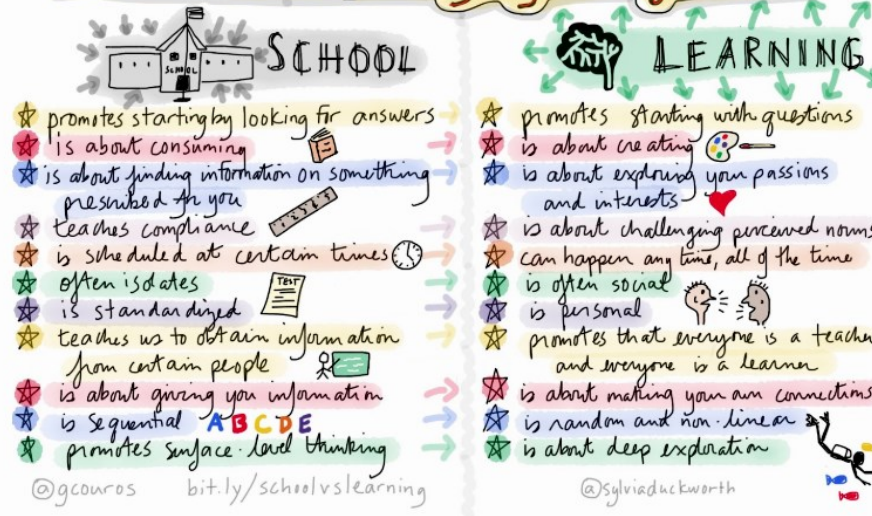 SCHOOL
SCHOOL
promotes starting by looking for answers
is about consuming
is about finding information on something
prescribed for you
teaches compliance
is scheduled at certain times
often isolates
TEST
is standardized
teaches us to obtain information
from certain people
is about giving you information
is sequential A B C D E
promotes surface-level thinking
@gcouros bit.ly/schoolvslearning
LEARNING
promotes starting with questions
is about creating
is about exploring your passions
and interests
is about challenging perceived norms
can happen any time, all of the time
is often social
is personal
promotes that everyone is a teacher
and everyone is a learner
is about making your own connections
is random and non-linear
is about deep exploration
@sylviaduckworth